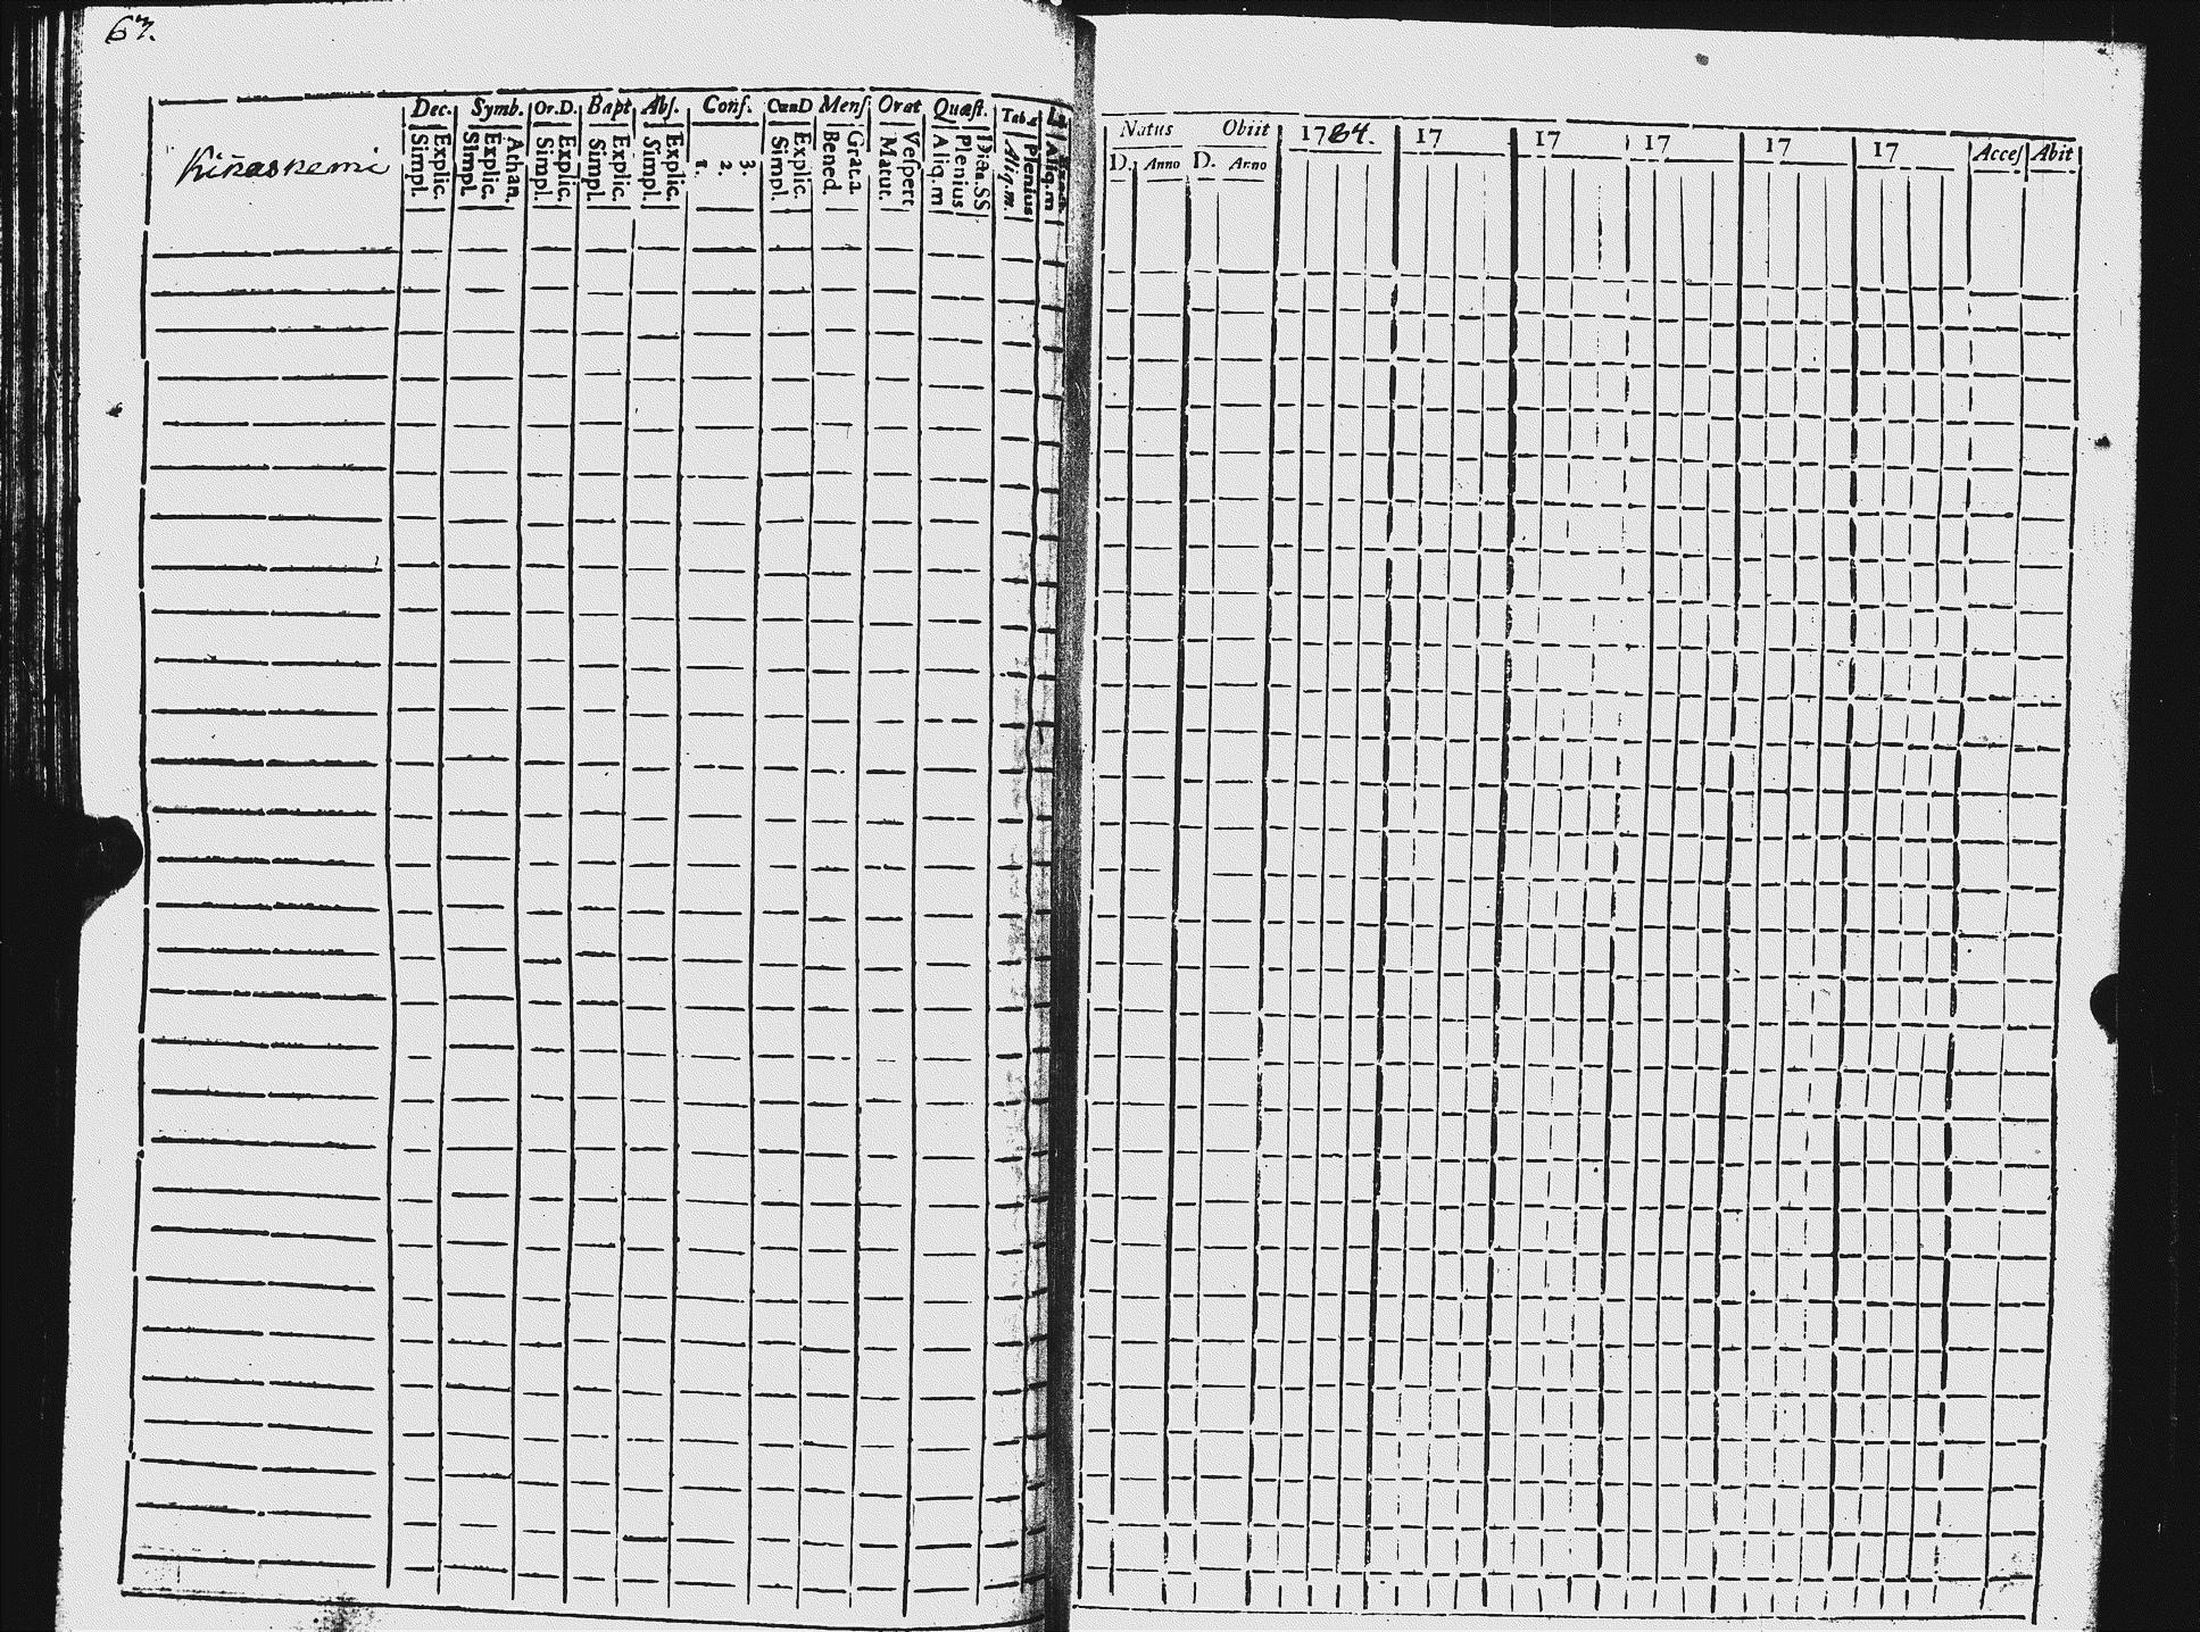 67.
Dec. Symb. Or.D. Bapt Abſ. Conf. CœnD Menſ Orat Quæſt. Tab.
Simpl. Explic. Simpl. Explic. Athan. Simpl. Explic. Simpl. Explic. Simpl. Explic. 1. 2. 3. Simpl. Explic. Bened. Grat.a Matut. Veſpert Aliq.m Plenius Dicta.SS Aliq.m. Plenius Aliq.m
Natus Obiit 1784. 17 17 17 17 17 Acceſ Abit
D. Anno D. Anno